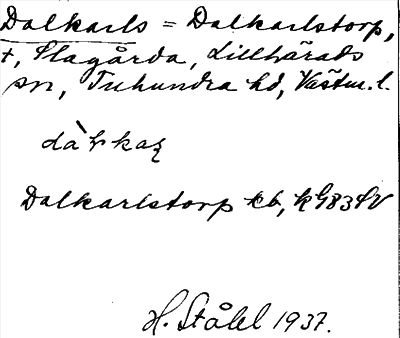 Dalkarls = Dalkarlstorp,
t, Slagårda, Lillhärads
sn, Tuhundra hd, Västm. l.
Dalkarlstorp
H. Ståhl 1937.